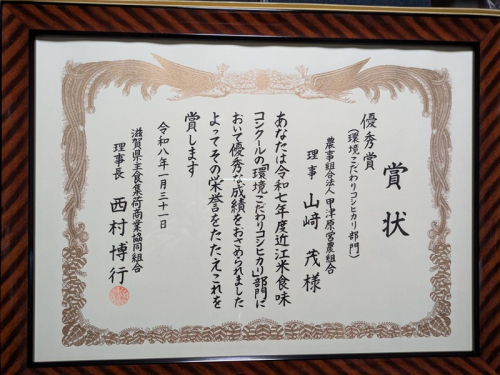 賞状
優秀賞
（環境こだわりコシヒカリ部門）
農事組合法人 甲津原営農組合
理事 山﨑 茂 様
あなたは令和七年度近江米食味
コンクールの「環境こだわりコシヒカリ」部門に
おいて優秀な成績をおさめられました
よってその栄誉をたたえこれを
賞します
令和八年一月三十一日
滋賀県主食集荷商業協同組合
理事長 西村博行